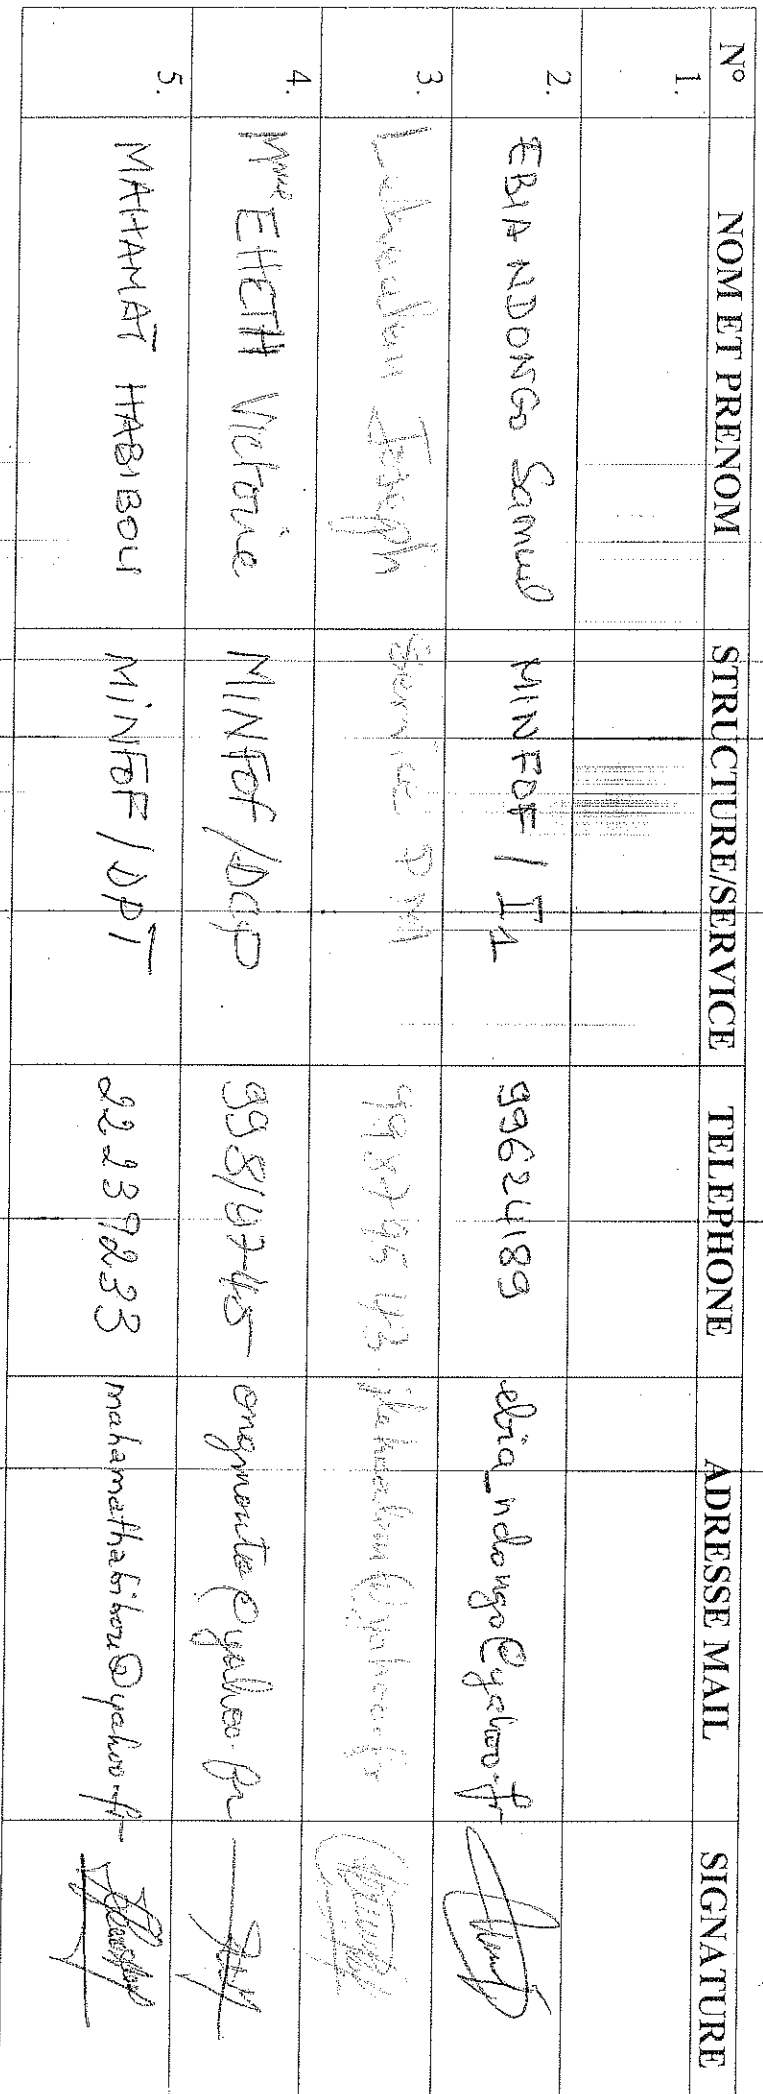 N° NOM ET PRENOM STRUCTURE/SERVICE TELEPHONE ADRESSE MAIL SIGNATURE
1.
2. EBIA NDONGO Samuel MINFOF / I1 99624189 ebia_ndongo@yahoo.fr
3. Joseph Service PM
4. Mme EHETH Victorine MINFOF/DCP 99814745 @yahoo.fr
5. MAHAMAT HABIBOU MINFOF / DPT 22239233 mahamathabibou@yahoo.fr